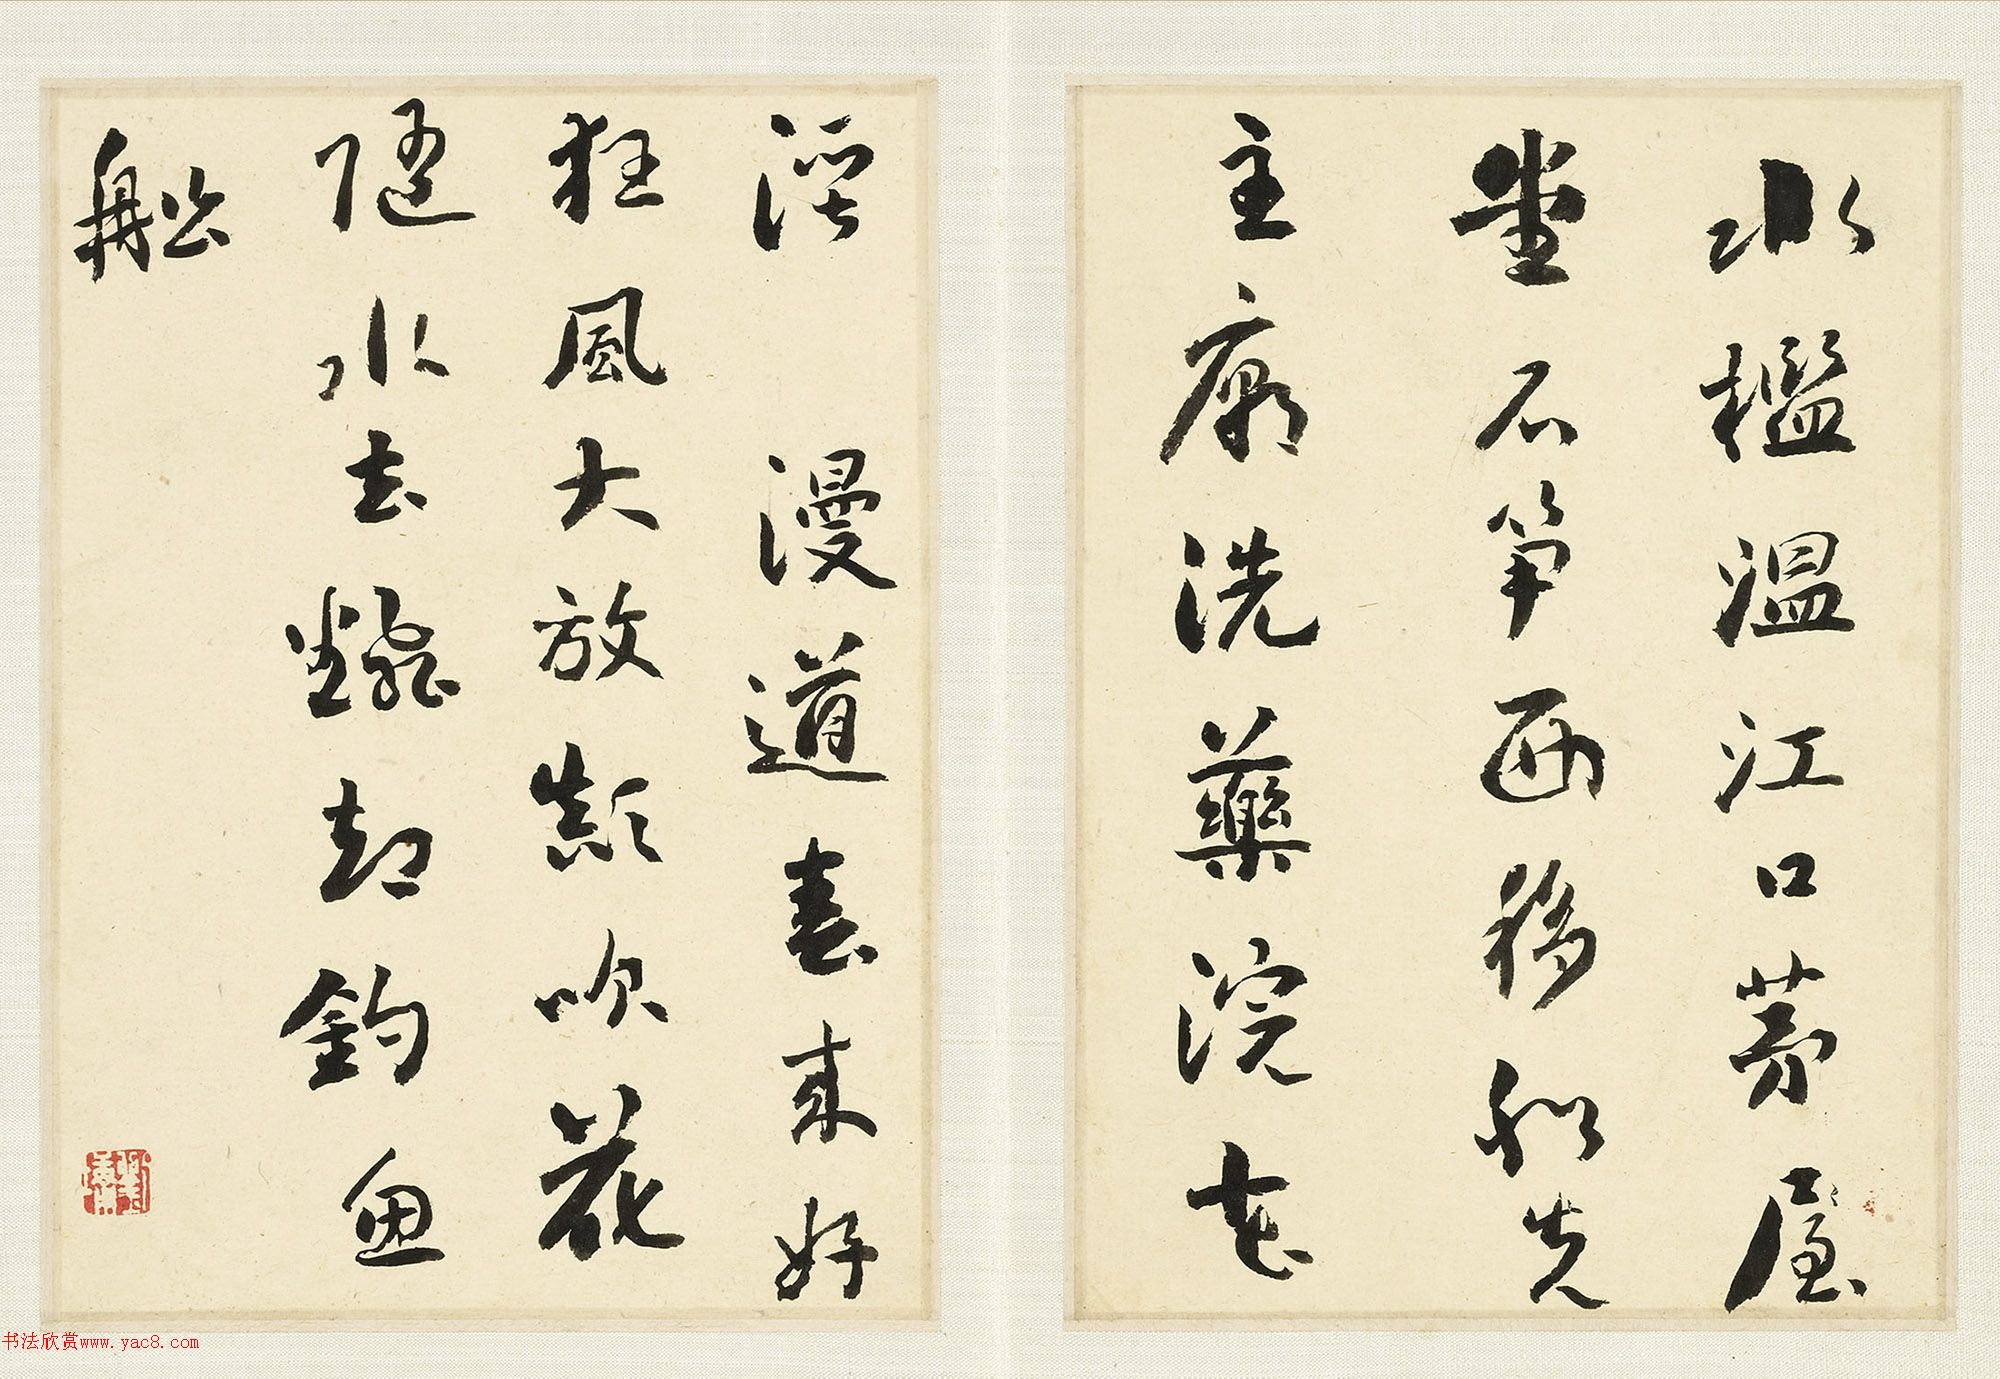 水檻溫江口茅屋
堂石笋西移舩先
主廟洗藥浣花
溪 漫道春来好
狂風大放顛吹花
隨水去飜却釣魚
舩
书法欣赏www.yac8.com